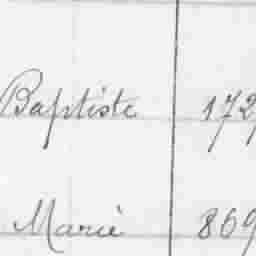 Baptiste 1729
Marie 869